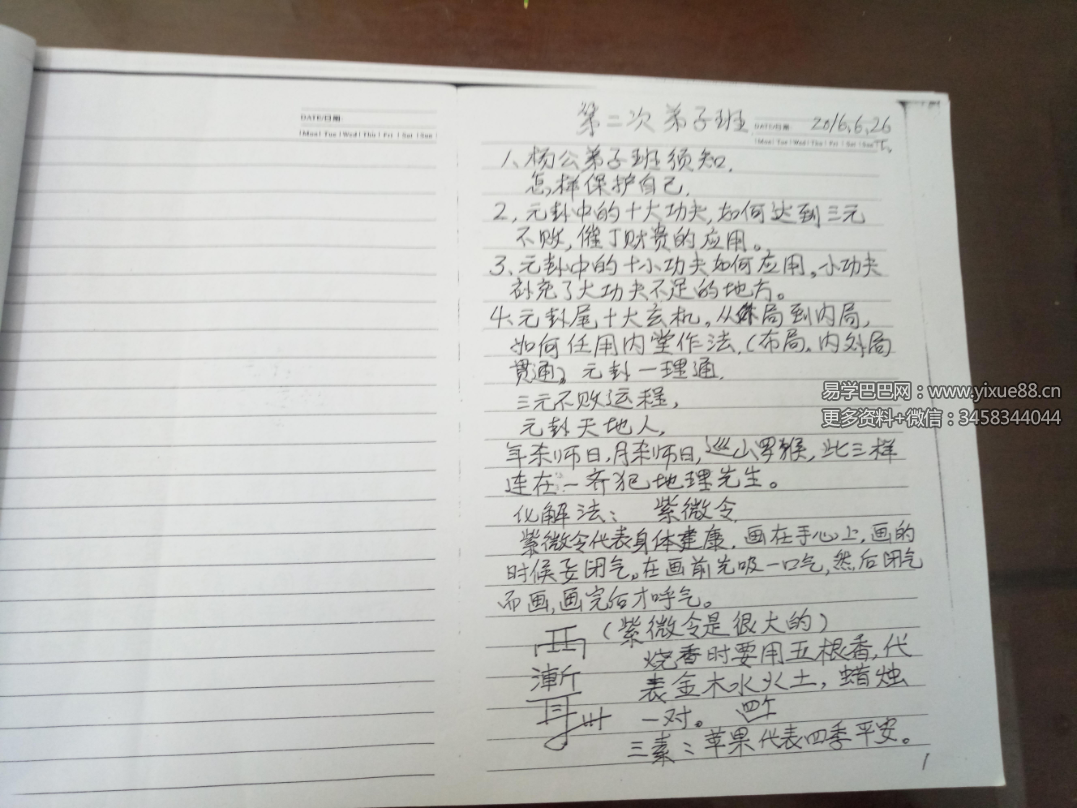 DATE/日期
Mon Tue Wed Thu Fri Sat Sun
第二次弟子班 DATE/日期 2016.6.26
Mon Tue Wed Thu Fri Sat Sun
1、杨公弟子班须知.
怎样保护自己.
2、元卦中的十大功夫,如何达到三元
不败,催丁财贵的应用。
3、元卦中的十小功夫如何应用。小功夫
补充了大功夫不足的地方。
4、元卦尾十大玄机。从外局到内局,
如何任用内堂作法.(布局、内外局
贯通)。元卦一理通.
三元不败运程,
元卦天地人.
年杀师日,月杀师日,巡山罗猴,此三样
连在一齐犯地理先生。
化解法: 紫微令
紫微令代表身体建康.画在手心上,画的
时候要闭气。在画前先吸一口气,然后闭气
而画,画完后才呼气。
(紫微令是很大的)
烧香时要用五根香,代
表金木水火土,蜡烛
一对。 四个
三素:苹果代表四季平安。
1
易学巴巴网:www.yixue88.cn
更多资料+微信:3458344044